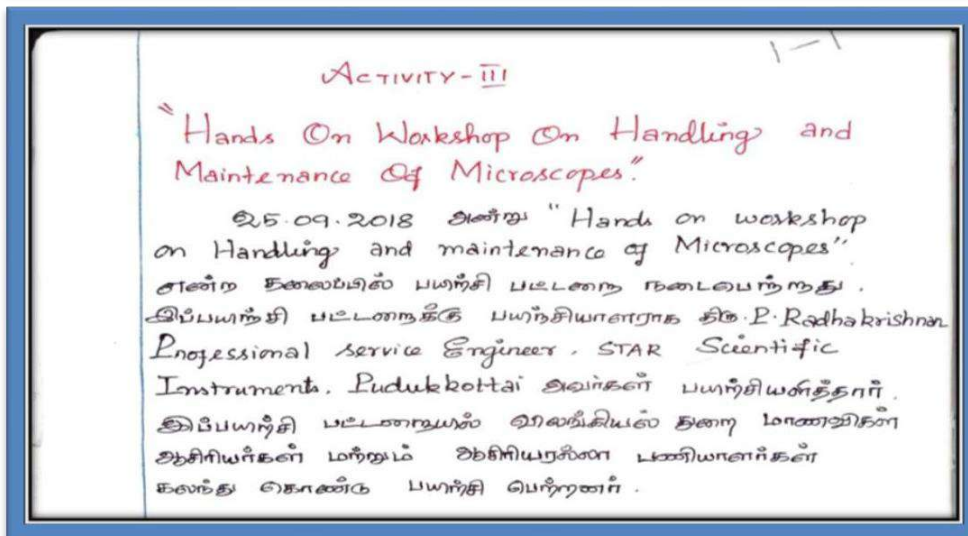 1-1
ACTIVITY - III
"Hands On Workshop On Handling and
Maintenance Of Microscopes."
25.09.2018 அன்று "Hands on workshop
on Handling and maintenance of Microscopes"
என்ற தலைப்பில் பயிற்சி பட்டறை நடைபெற்றது.
இப்பயிற்சி பட்டறைக்கு பயிற்சியாளராக திரு. P. Radhakrishnan
Professional service Engineer, STAR Scientific
Instruments, Pudukkottai அவர்கள் பயிற்சியளித்தார்.
இப்பயிற்சி பட்டறையில் விலங்கியல் துறை மாணவிகள்
ஆசிரியர்கள் மற்றும் ஆசிரியரல்லா பணியாளர்கள்
கலந்து கொண்டு பயிற்சி பெற்றனர்.